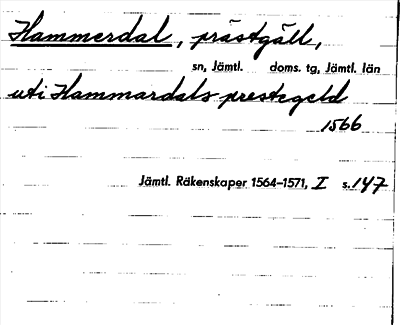 Hammerdal, prästgäll,
sn, Jämtl. doms. tg, Jämtl. län
uti Hammardals prestegeld
1566
Jämtl. Räkenskaper 1564–1571, I s. 147